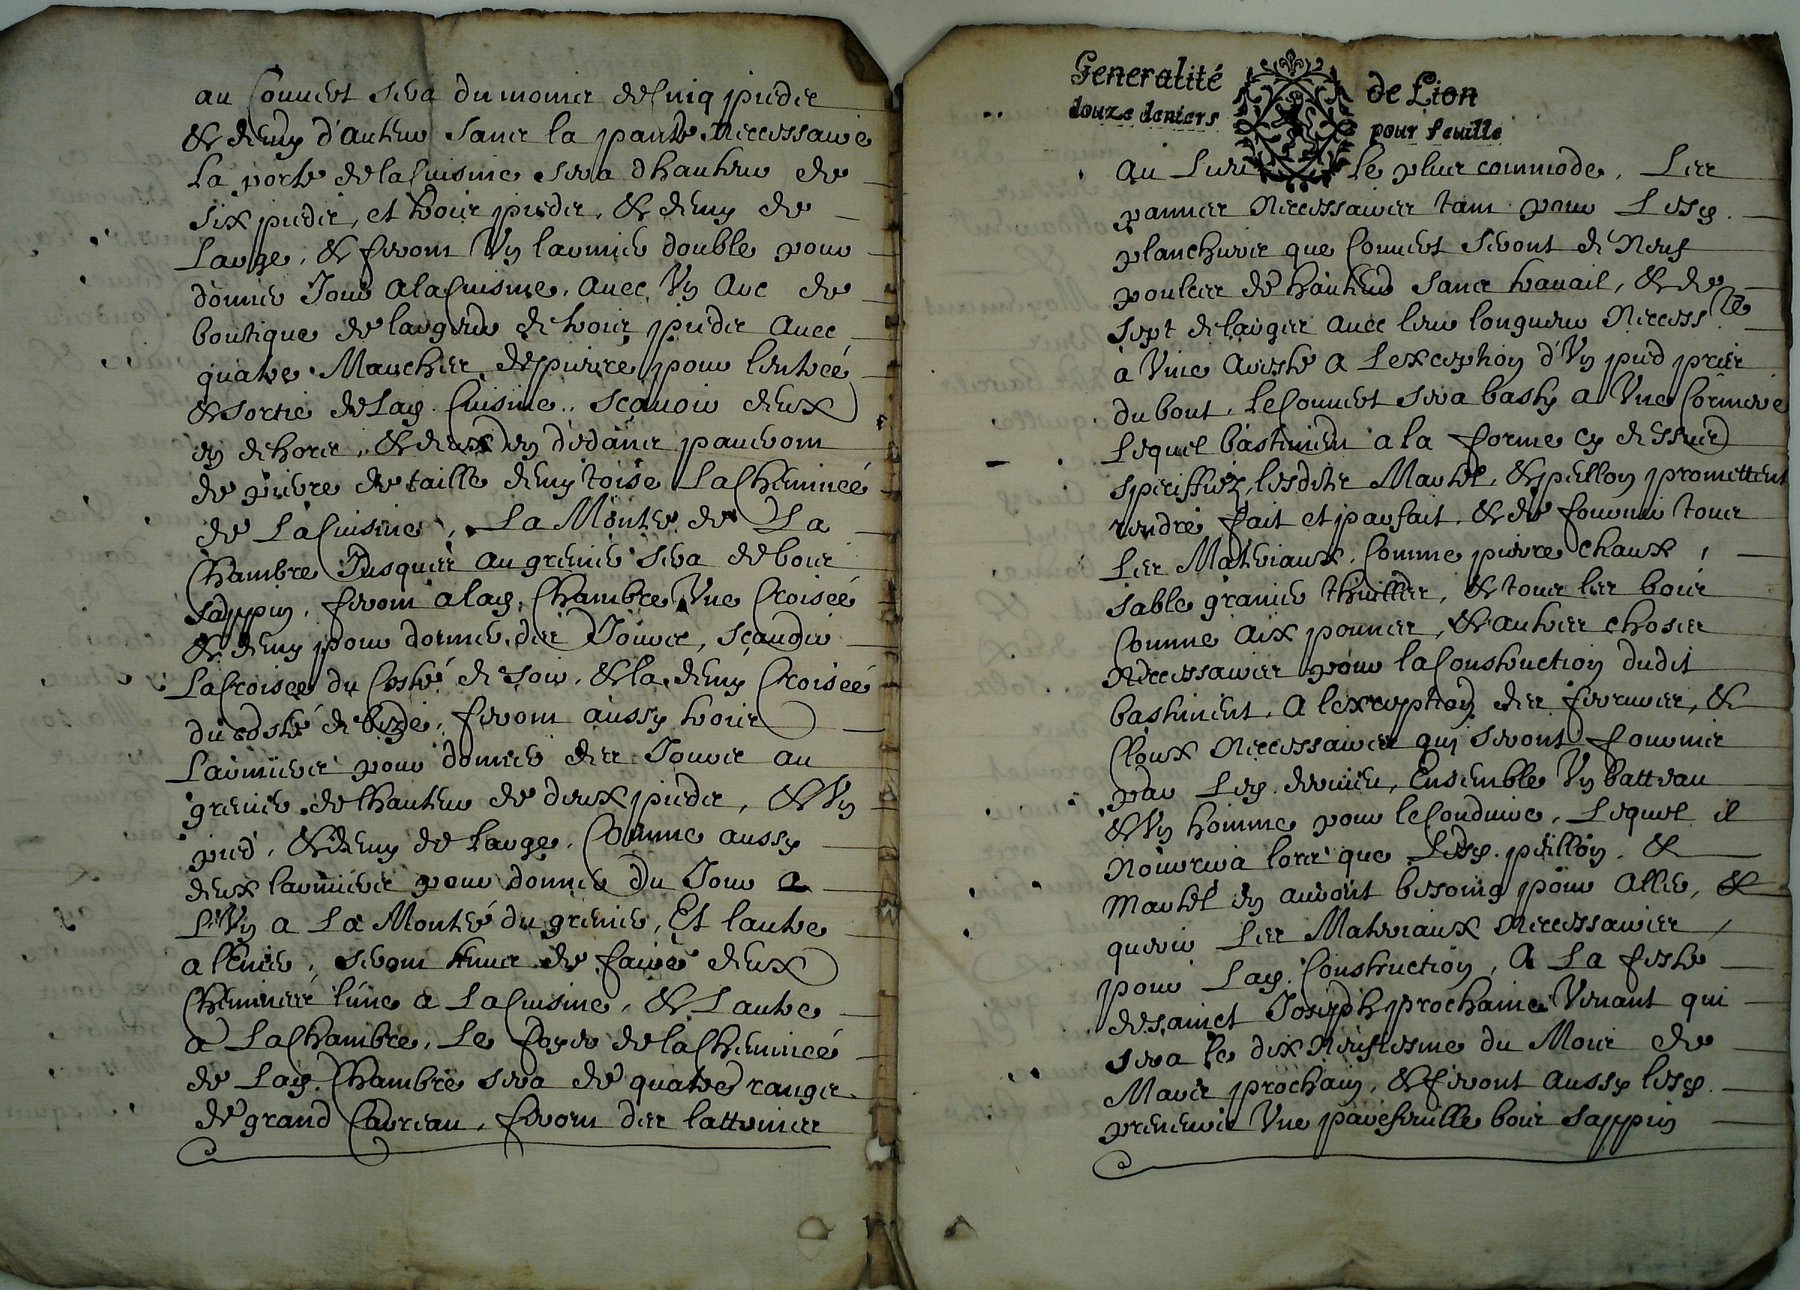 au Couuert sera du moins de Cinq pieds
& demy d'auteur sans la pante Necessaire
La porte de la Cuisine sera d hauteur de
six pieds, et trois pieds, & demy de
Large, & feront Vn larmier double pour
donner Jour a la Cuisine, auec Vn Arc de
boutique de largeur de trois pieds auec
quatre Marches de pierre pour lentreé
& sortie de Lad. Cuisine, sçauoir deux
en dehors, & deux en dedans
de pierre de taille demy toise La Chemineé
de La Cuisine, La Monteé de La
Chambre Jusques au grenier sera de bois
sappin, feront a lad. Chambre Vne Croiseé
& demy pour donner des Jours, sçauoir
La Croiseé du Costé de soir, & la demy Croiseé
du costé de bize, feront aussy trois
Larmiers pour donner des Jours au
grenier de lhauteur de deux pieds, & Vn
pied, & demy de Large, Comme aussy
deux larmiers pour donner du Jour a
L'Vn a La Monteé du grenier, Et lautre
a leuier, seront tenus de faire deux
Chemineés lune a La Cuisine, & Lautre
a La Chambre, Le foyer de la Chemineé
de Lad. Chambre sera de quatre rangs
de grand Carreau, feront des lattrines
Generalité de Lion
douze deniers pour feuille
Au Lieu le plus commode, Les
pannes Necessaires tant pour Lesd.
planchers que Couuert seront de Neuf
poulces de hauteur sans trauail, & de
sept de larges auec leur longueur Necess.re
à Viue Areste a Lexception d'Vn pied pres
du bout, le Couuert sera basty a Vne
Lequel bastiment a la forme cy dessus
speciffiez, lesdits Martel, & peillon promettent
rendre fait et parfait, & de fournir tous
Les Materiaux, Comme pierre chaux,
sable grauier thuilles, & tous les bois
Comme aix pannes, & autres choses
Necessaires pour la Construction dudit
bastiment, A lexception des ferrures, &
Cloux Necessaires qui seront fournis
par Led. Ensemble Vn batteau
& Vn homme pour le Conduire, Lequel il
Nourrira lors que Lesd. peillon, &
Martel en auront besoing pour aller, &
querir Les Materiaux Necessaires
pour Lad. Construction, A La feste
de sainct Joseph prochaine Venant qui
sera le dix Neufiesme du Mois de
Mars prochain, & feront aussy lesd.
preneurs Vne bois sappin